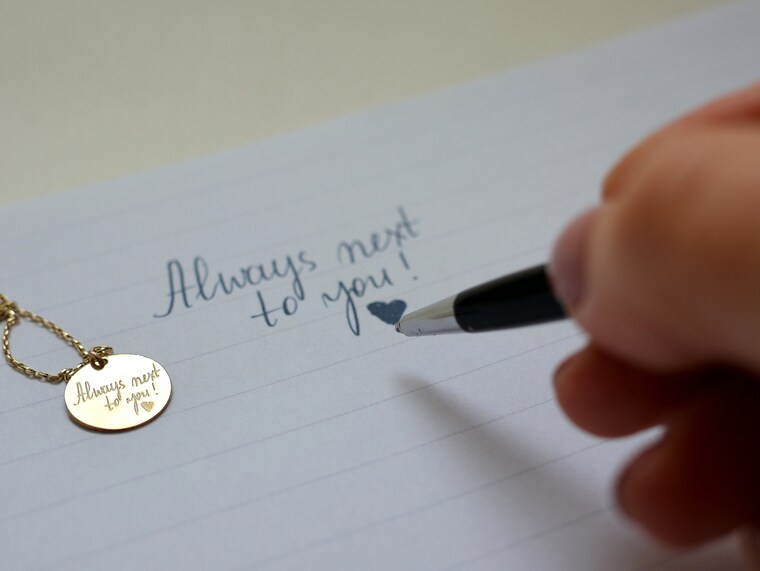 Always next
to you!
Always next
to you!